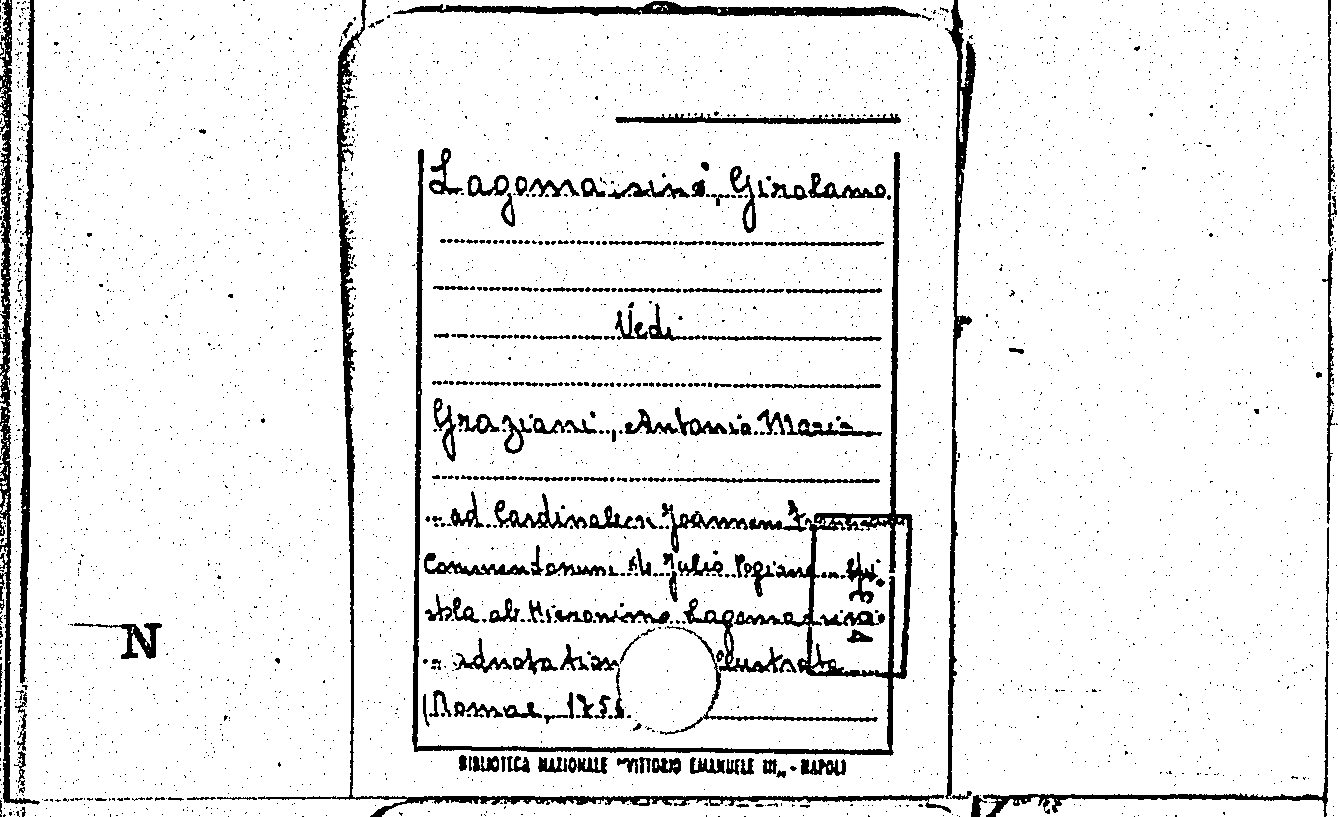 Lagomarsino, Girolamo
Vedi
Graziani, Antonio Maria
... ad Cardinalem Joannem
Commendonum de Julio Pogiano
ab Hieronimo Lagomarsino
... adnotation
(Romae, 175
N
BIBLIOTECA NAZIONALE "VITTORIO EMANUELE III„ - NAPOLI